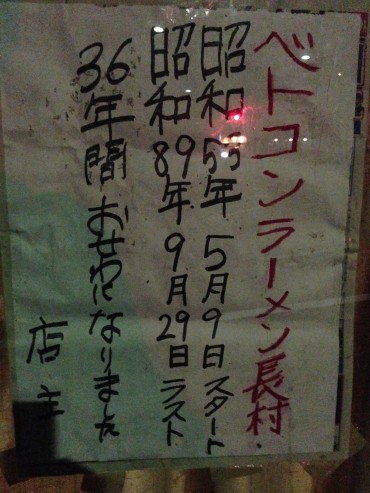 ベトコンラーメン長村.
昭和55年 5月9日スタート
昭和89年 9月29日ラスト
36年間お世わになりました
店主